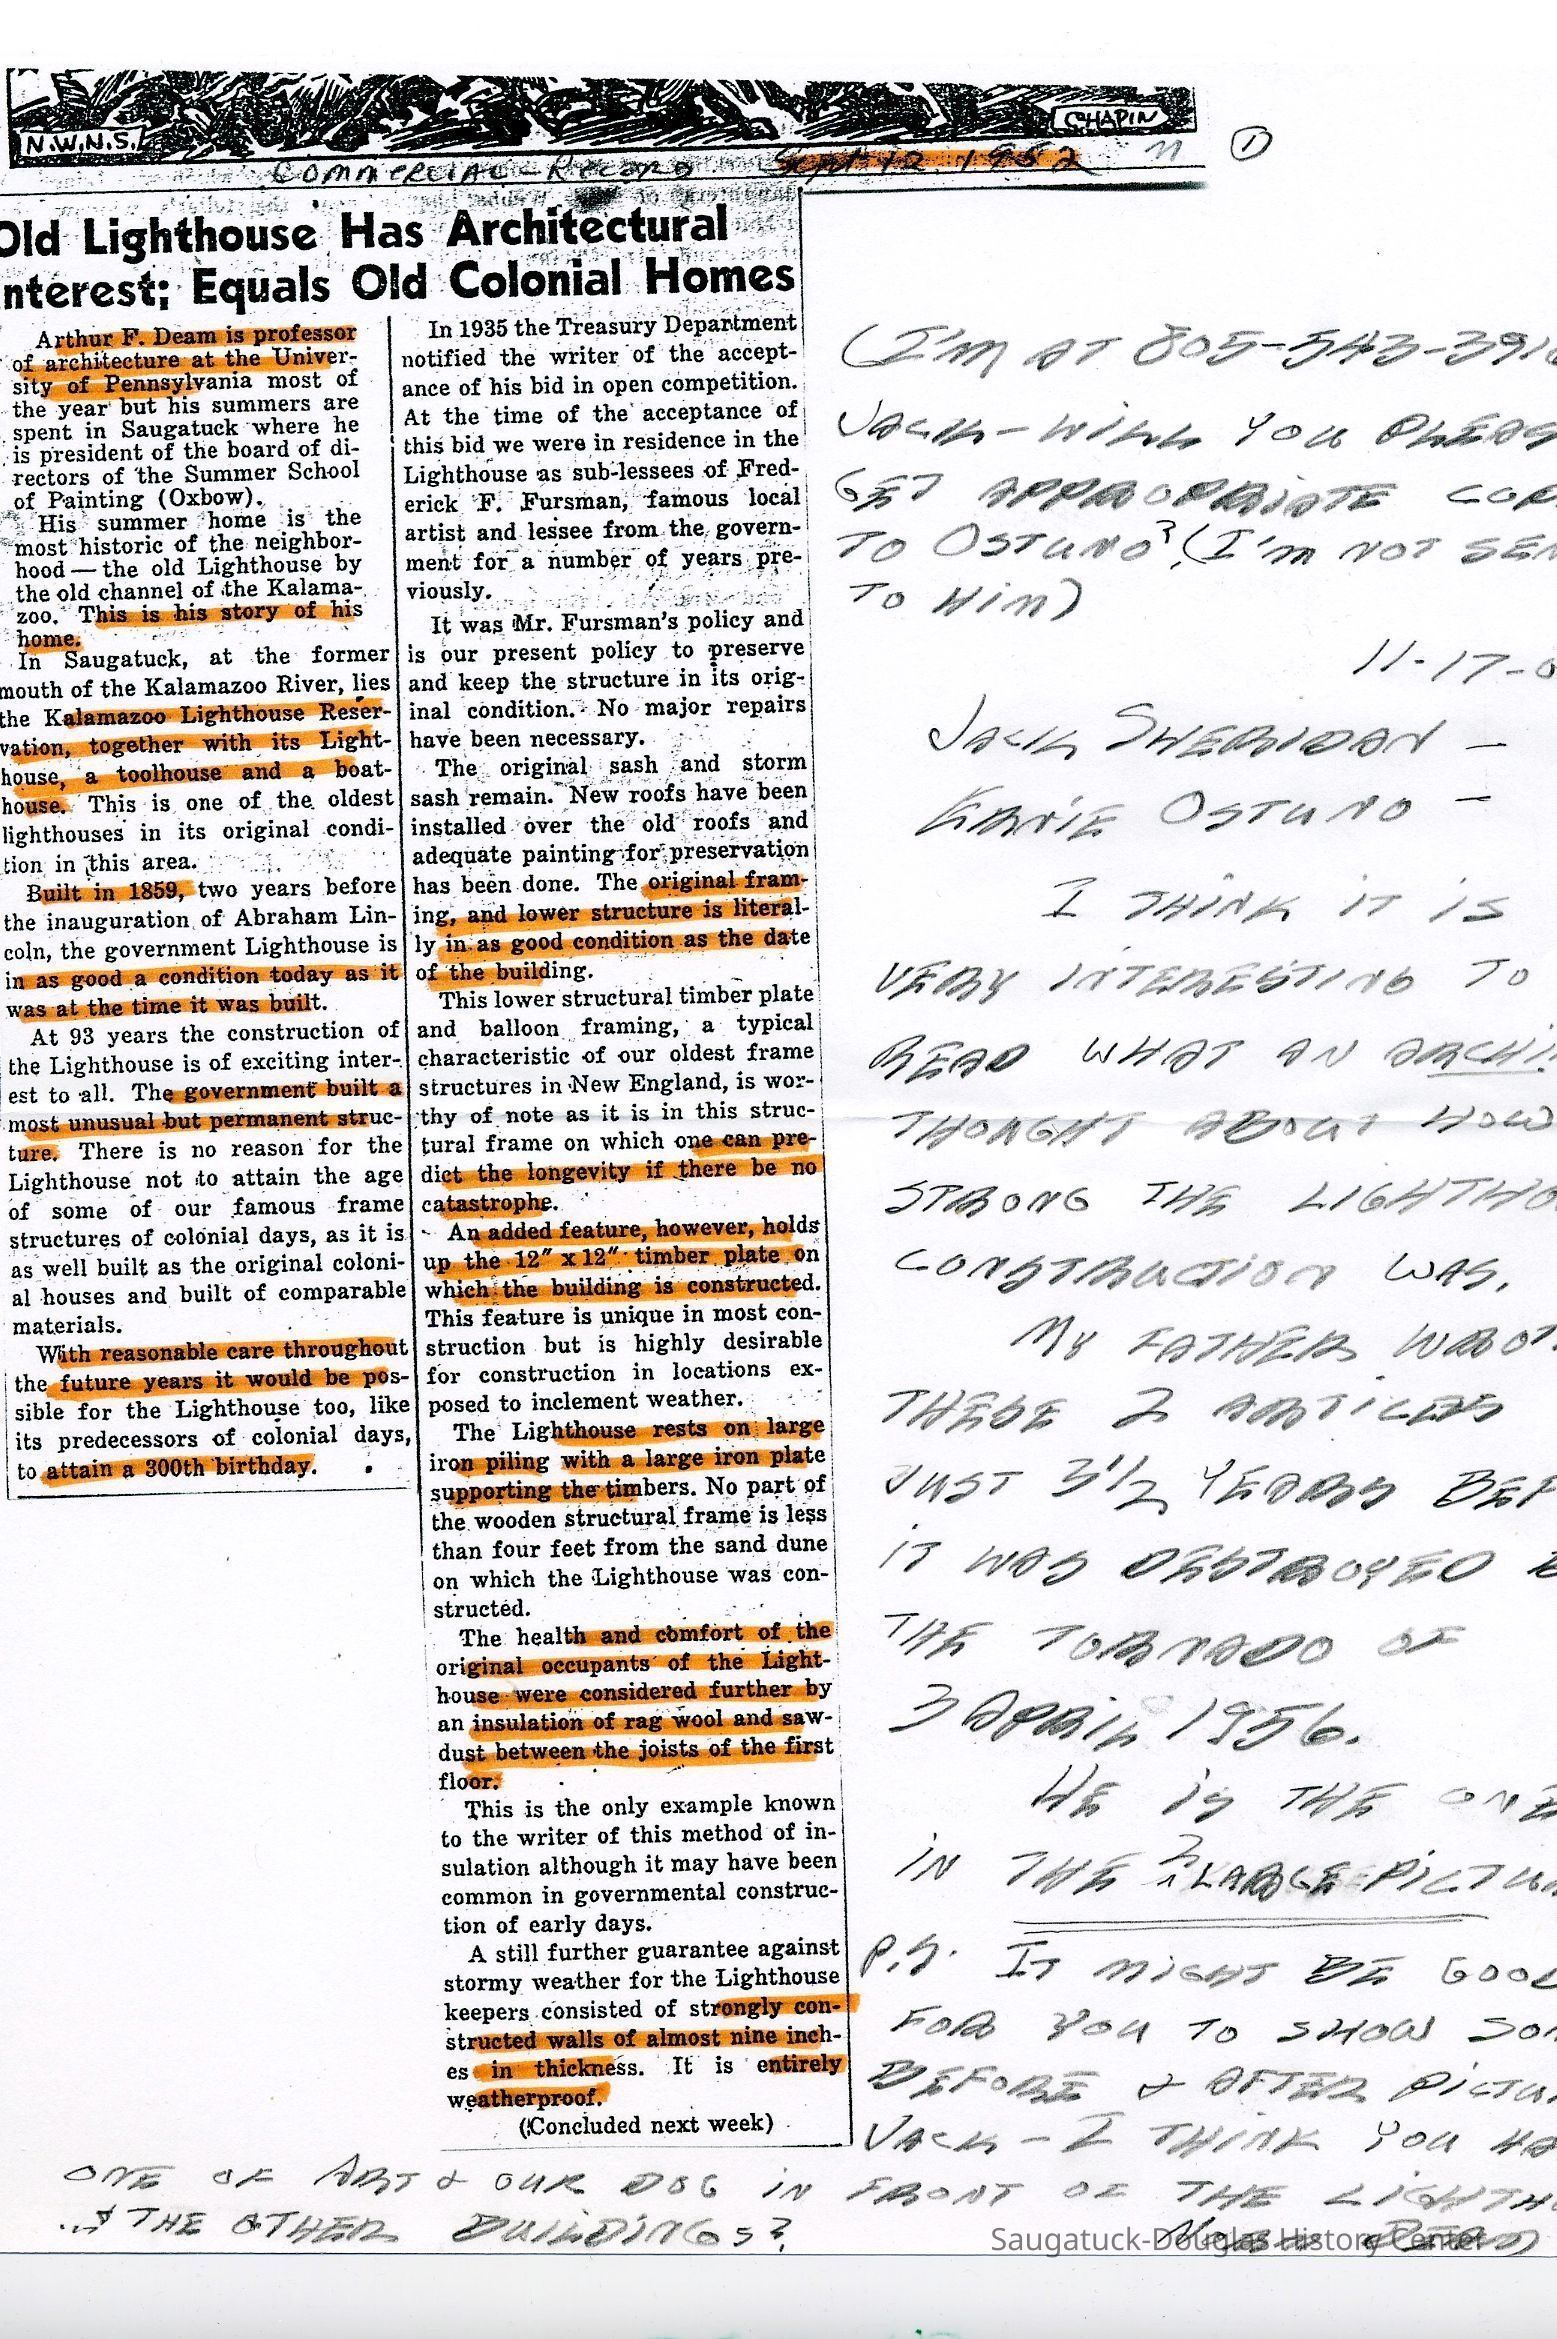 N.W.N.S.
CHAPIN
Commercial-Record Sept 12 1952
1
Old Lighthouse Has Architectural
nterest; Equals Old Colonial Homes
Arthur F. Deam is professor
of architecture at the Univer-
sity of Pennsylvania most of
the year but his summers are
spent in Saugatuck where he
is president of the board of di-
rectors of the Summer School
of Painting (Oxbow).
His summer home is the
most historic of the neighbor-
hood — the old Lighthouse by
the old channel of the Kalama-
zoo. This is his story of his
home.
In Saugatuck, at the former
mouth of the Kalamazoo River, lies
the Kalamazoo Lighthouse Reser-
vation, together with its Light-
house, a toolhouse and a boat-
house. This is one of the oldest
lighthouses in its original condi-
tion in this area.
Built in 1859, two years before
the inauguration of Abraham Lin-
coln, the government Lighthouse is
in as good a condition today as it
was at the time it was built.
At 93 years the construction of
the Lighthouse is of exciting inter-
est to all. The government built a
most unusual but permanent struc-
ture. There is no reason for the
Lighthouse not to attain the age
of some of our famous frame
structures of colonial days, as it is
as well built as the original coloni-
al houses and built of comparable
materials.
With reasonable care throughout
the future years it would be pos-
sible for the Lighthouse too, like
its predecessors of colonial days,
to attain a 300th birthday.
In 1935 the Treasury Department
notified the writer of the accept-
ance of his bid in open competition.
At the time of the acceptance of
this bid we were in residence in the
Lighthouse as sub-lessees of Fred-
erick F. Fursman, famous local
artist and lessee from the govern-
ment for a number of years pre-
viously.
It was Mr. Fursman's policy and
is our present policy to preserve
and keep the structure in its orig-
inal condition. No major repairs
have been necessary.
The original sash and storm
sash remain. New roofs have been
installed over the old roofs and
adequate painting for preservation
has been done. The original fram-
ing, and lower structure is literal-
ly in as good condition as the date
of the building.
This lower structural timber plate
and balloon framing, a typical
characteristic of our oldest frame
structures in New England, is wor-
thy of note as it is in this struc-
tural frame on which one can pre-
dict the longevity if there be no
catastrophe.
An added feature, however, holds
up the 12" x 12" timber plate on
which the building is constructed.
This feature is unique in most con-
struction but is highly desirable
for construction in locations ex-
posed to inclement weather.
The Lighthouse rests on large
iron piling with a large iron plate
supporting the timbers. No part of
the wooden structural frame is less
than four feet from the sand dune
on which the Lighthouse was con-
structed.
The health and comfort of the
original occupants of the Light-
house were considered further by
an insulation of rag wool and saw-
dust between the joists of the first
floor.
This is the only example known
to the writer of this method of in-
sulation although it may have been
common in governmental construc-
tion of early days.
A still further guarantee against
stormy weather for the Lighthouse
keepers consisted of strongly con-
structed walls of almost nine inch-
es in thickness. It is entirely
weatherproof.
(Concluded next week)
(I'M AT 805-543-391
JACK - WILL YOU PLEAS
GET APPROPRIATE COP
TO OSTUNO? (I'M NOT SEN
TO HIM)
11-17-0
JACK SHERIDAN -
KRNIE OSTUNO -
I THINK IT IS
VERY INTERESTING TO
READ WHAT AN ARCHI
THOUGHT ABOUT HOW
STRONG THE LIGHTHO
CONSTRUCTION WAS.
MY FATHER WROT
THESE 2 ARTICLES
JUST 3 1/2 YEARS BEF
IT WAS DESTROYED B
THE TORNADO OF
3 APRIL 1956.
HE IS THE ONE
IN THE 2 LARGE PICTU
P.S. IT MIGHT BE GOOD
FOR YOU TO SHOW SOM
BEFORE & AFTER PICTU
JACK - I THINK YOU HA
ONE OF ART & OUR DOG IN FRONT OF THE LIGHTH
...& THE OTHER BUILDINGS?
DEAM
Saugatuck-Douglas History Center